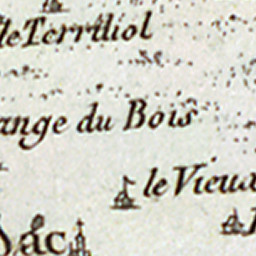 le Territiol
ange du Bois
le Vieux
Dac